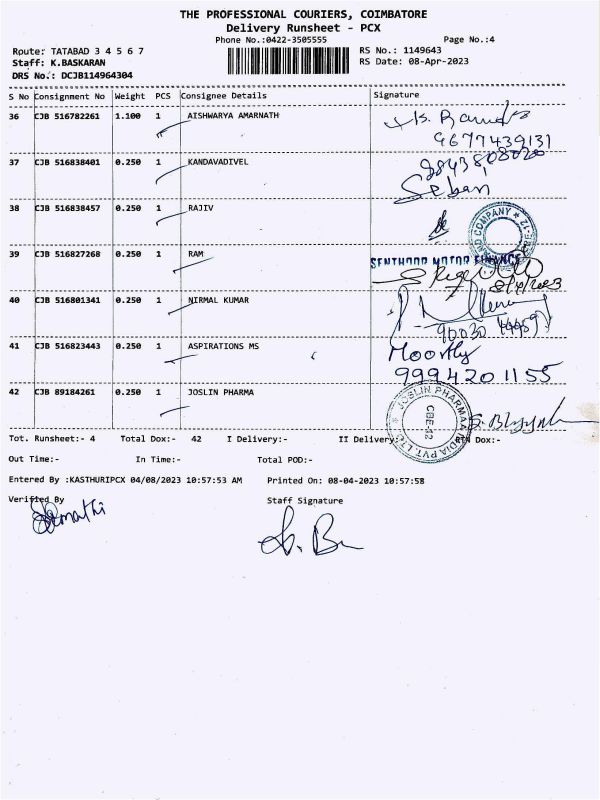 THE PROFESSIONAL COURIERS, COIMBATORE
Delivery Runsheet - PCX
Phone No.:0422-3505555 Page No.:4
Route: TATABAD 3 4 5 6 7 RS No.: 1149643
Staff: K.BASKARAN RS Date: 08-Apr-2023
DRS No.: DCJB114964304
S No Consignment No Weight PCS Consignee Details Signature
36 CJB 516782261 1.100 1 AISHWARYA AMARNATH
9677439131
37 CJB 516838401 0.250 1 KANDAVADIVEL 9843808020
Seban
38 CJB 516838457 0.250 1 RAJIV
AND COMPANY
39 CJB 516827268 0.250 1 RAM SENTHOOR MOTOR FINANCE
8/4/2023
40 CJB 516801341 0.250 1 NIRMAL KUMAR
41 CJB 516823443 0.250 1 ASPIRATIONS MS Moorthy
9994201155
42 CJB 89184261 0.250 1 JOSLIN PHARMA
JOSLIN PHARMAA INDIA PVT. LTD. CBE-12
Tot. Runsheet:- 4 Total Dox:- 42 I Delivery:- II Delivery:- RTN Dox:-
Out Time:- In Time:- Total POD:-
Entered By :KASTHURIPCX 04/08/2023 10:57:53 AM Printed On: 08-04-2023 10:57:58
Verified By Staff Signature